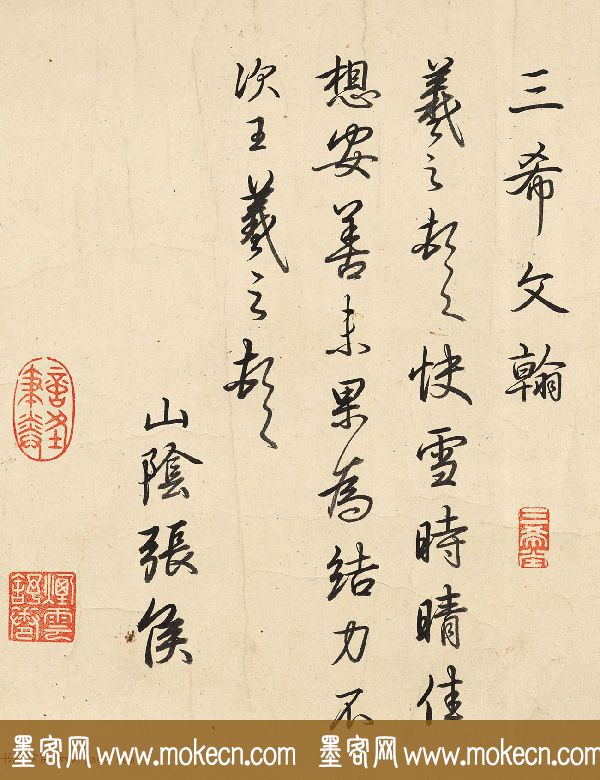 三希文翰
羲之頓首快雪時晴佳
想安善未果為結力不
次王羲之頓首
山陰張侯
三希堂
墨客网 www.mokecn.com
墨客网 www.mokecn.com